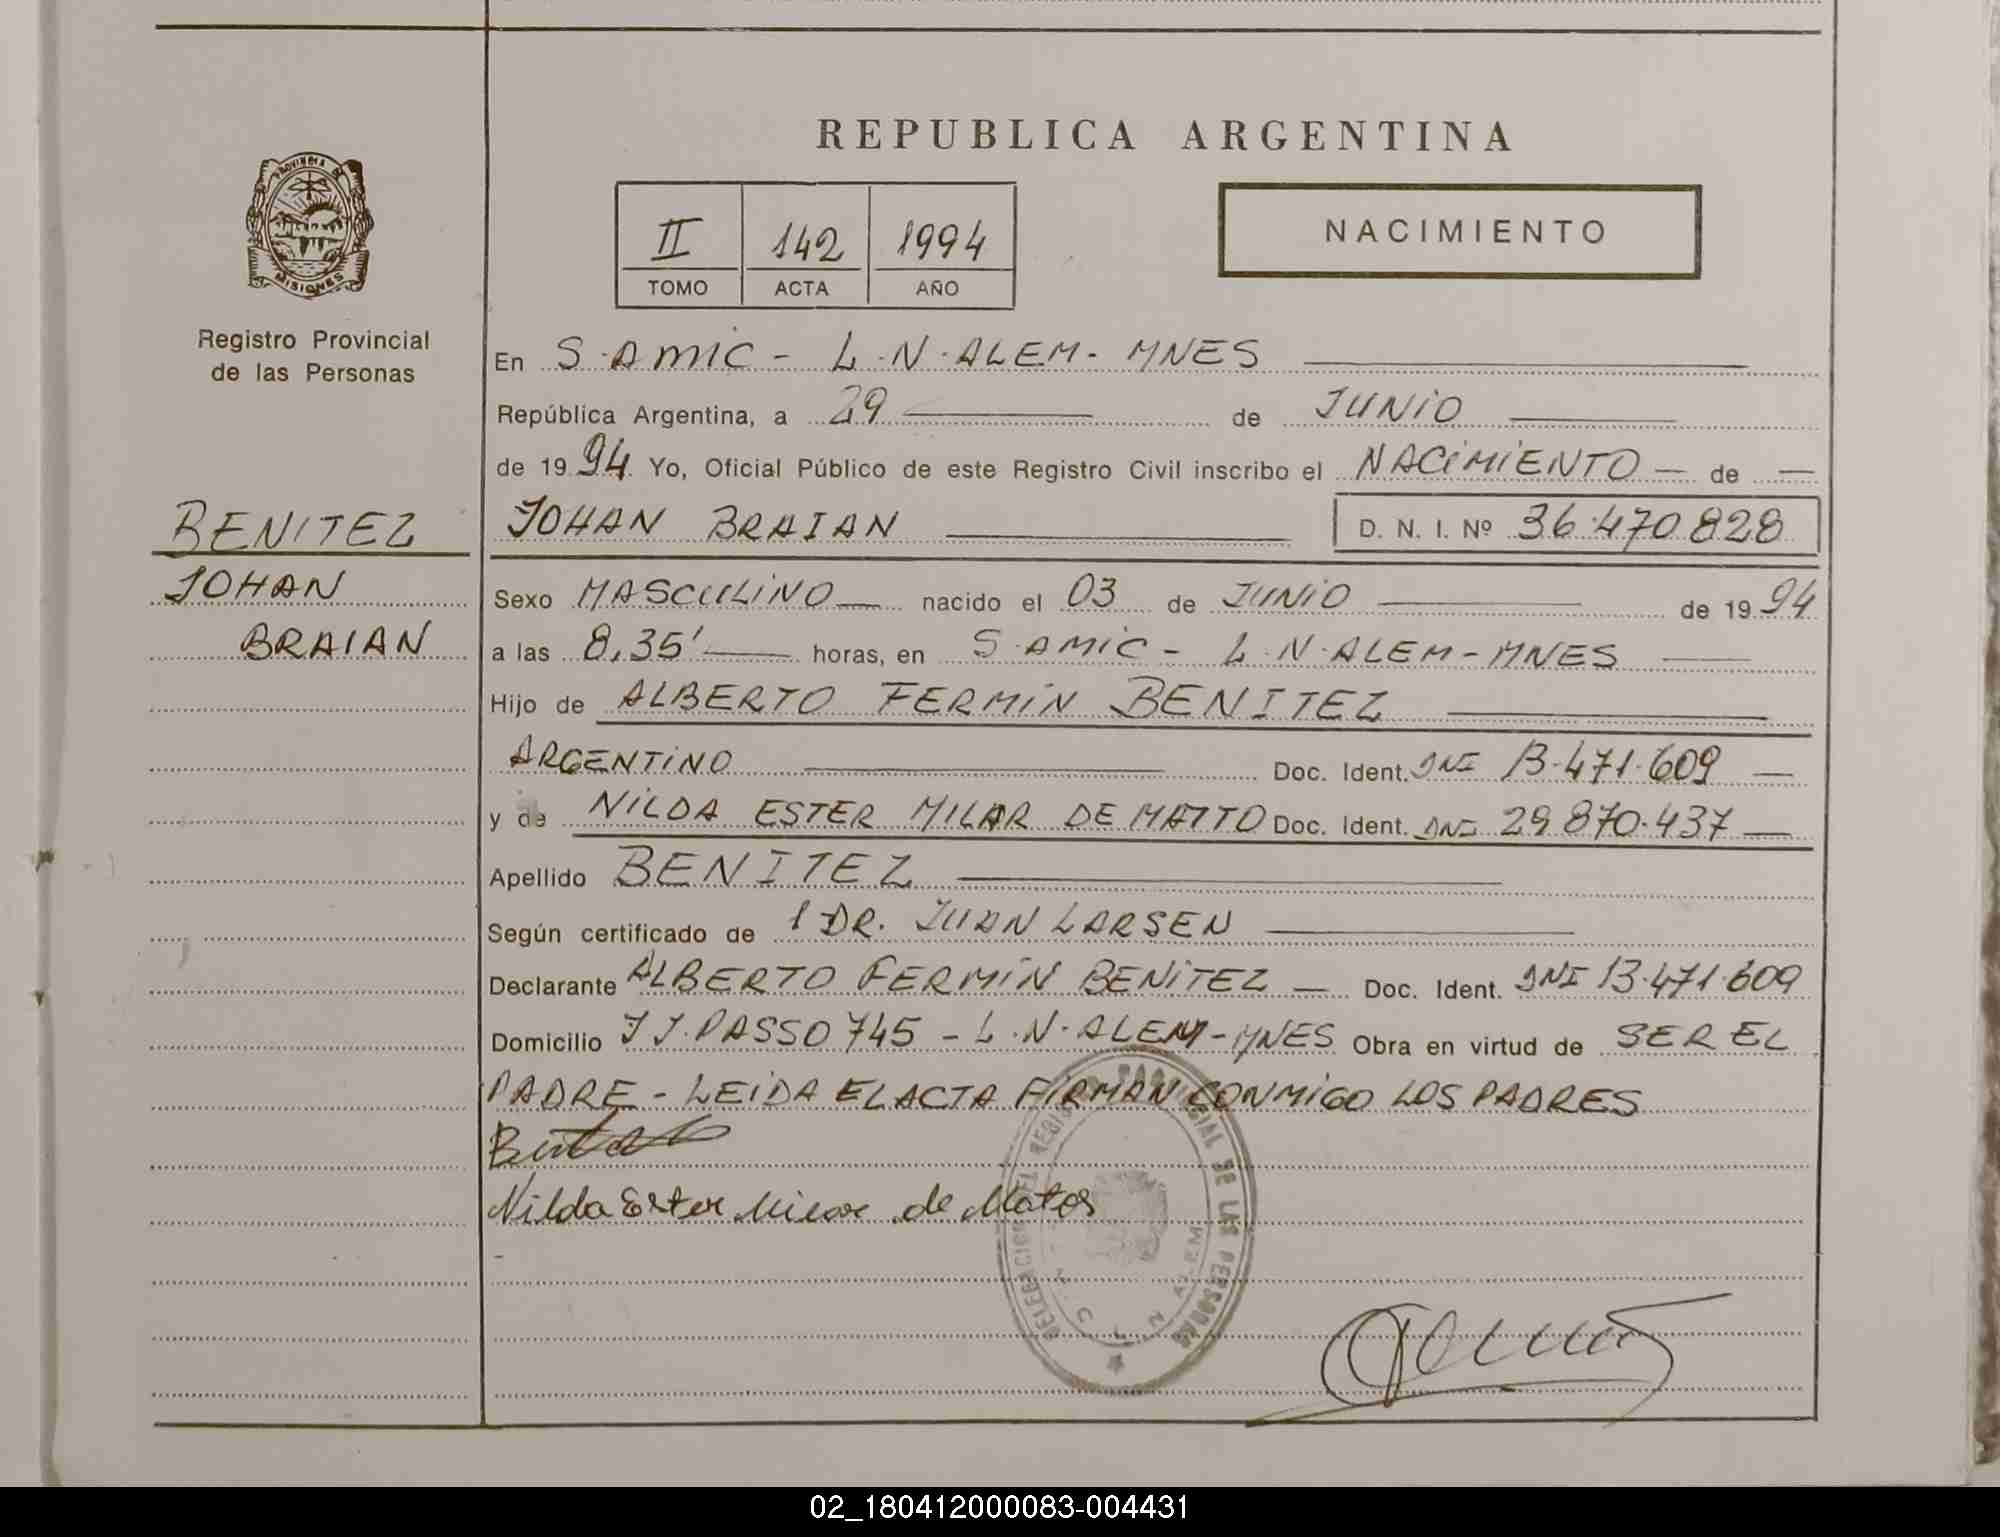 REPUBLICA ARGENTINA
PROVINCIA DE
MISIONES
Registro Provincial
de las Personas
II 142 1994
TOMO ACTA AÑO
NACIMIENTO
En S.AMIC - L.N.ALEM- MNES
República Argentina, a 29 de JUNIO
de 1994 Yo, Oficial Público de este Registro Civil inscribo el NACIMIENTO de
BENITEZ
JOHAN
BRAIAN
JOHAN BRAIAN D. N. I. Nº 36.470.828
Sexo MASCULINO nacido el 03 de JUNIO de 1994
a las 8,35' horas, en S.AMIC - L.N.ALEM-MNES
Hijo de ALBERTO FERMIN BENITEZ
ARGENTINO Doc. Ident. DNI 13.471.609
y de NILDA ESTER MILAR DE MATTO Doc. Ident. DNI 29.870.437
Apellido BENITEZ
Según certificado de 1 DR. JUAN LARSEN
Declarante ALBERTO FERMIN BENITEZ Doc. Ident. DNI 13.471.609
Domicilio J J. PASSO 745 - L.N.ALEM-MNES Obra en virtud de SER EL
PADRE - LEIDA EL ACTA FIRMAN CONMIGO LOS PADRES
Nilda Ester de Matos
DELEGACION DEL REGISTRO PROVINCIAL DE LAS PERSONAS
L. N. ALEM
02_180412000083-004431